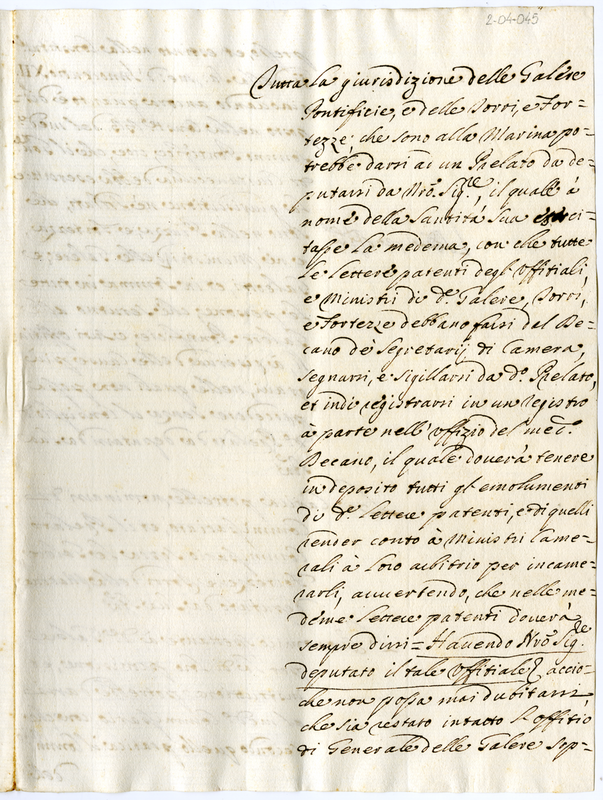 2-04-045
Tutta la giurisdizione delle Galere
Pontificie, e delle Torri, e For=
tezze, che sono alla Marina po=
trebbe darsi ad un Prelato da de=
putarsi da Nro. Sig.re, il quale à
nome della Santità Sua eserci=
tasse la medema, con che tutte
le lettere patenti degl'Offitiali,
e Ministri di d.e Galere, Torri,
e Fortezze debbano farsi dal De=
cano de' Segretarij di Camera,
segnarsi, e sigillarsi da d.o Prelato,
et indi registrarsi in un registro
à parte nell'Offizio del med.o
Decano, il quale dovera tenere
in deposito tutti gl'emolumenti
di d.e lettere patenti, e di quelli
render conto à Ministri Came=
rali à loro arbitrio per incame=
rarli, avvertendo, che nelle me=
deme lettere patenti doverà
sempre dirsi = Havendo Nro Sig.re
deputato il tale Offitiale acciò=
che non possa mai dubitarsi,
che sia restato intatto l'Offitio
di Generale delle Galere sop=